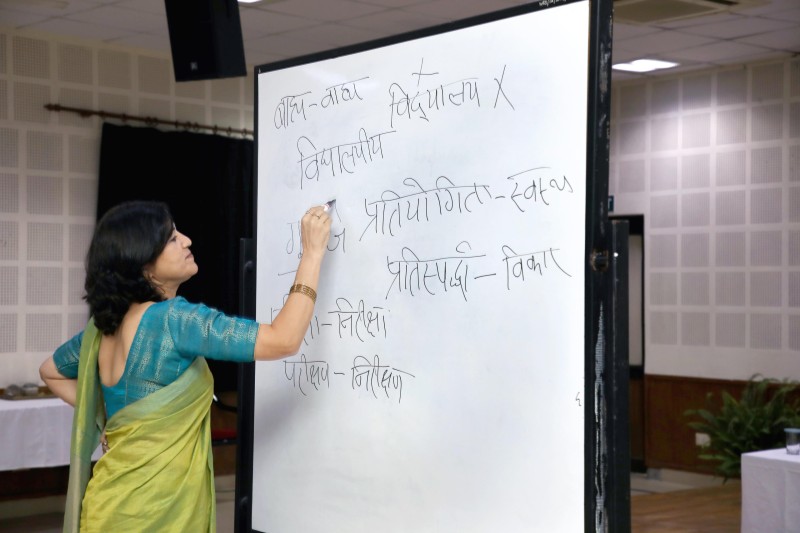 बाह्य - वाह्य विद्यालय X
विद्यालयीय
प्रतियोगिता - स्वस्थ
प्रतिस्पर्द्धा - विकार
- निरीक्षा
परीक्षण - निरीक्षण